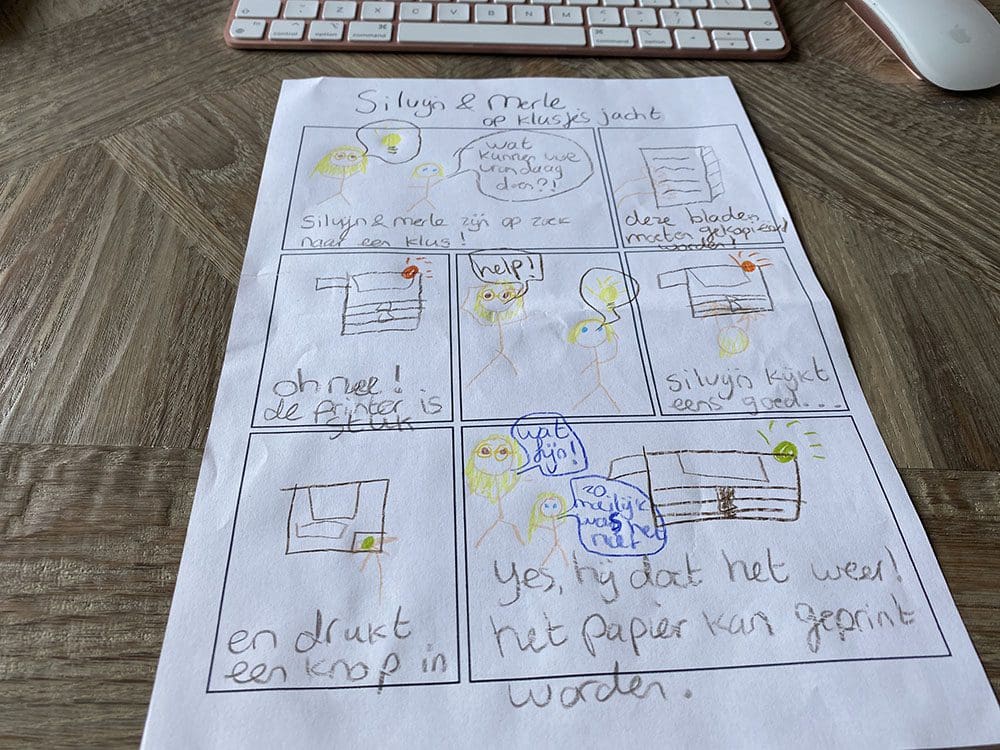 Silvijn & Merle
op klusjes jacht
wat
kunnen we
vandaag
doen?!
Silvijn & merle zijn op zoek
naar een klus!
deze bladen
moeten gekopieerd
worden!
oh nee!
de printer is
stuk
help!
silvijn kijkt
eens goed...
en drukt
een knop in
wat
fijn!
zo
moeilijk
was het
niet
Yes, hij doet het weer!
het papier kan geprint
worden.
control
option
command
command
option
Z
X
C
V
B
N
M